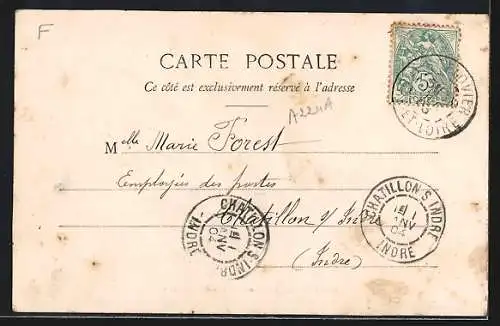 F
CARTE POSTALE
Ce côté est exclusivement réservé à l'adresse
A224A
Melle Marie Forest
Employée des postes
Chatillon s/ Indre
(Indre)
CHATILLON S INDRE
INDRE
CHATILLON S INDRE
INDRE
ET-LOIRE